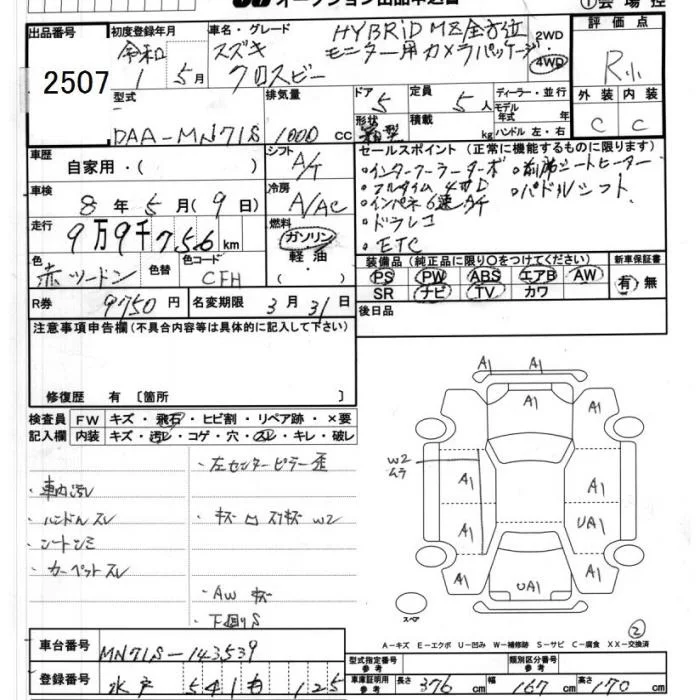 オークション出品申込書
①会場控
出品番号
2507
初度登録年月
令和
1 5月
車名・グレード
スズキ
クロスビー
HYBRiD MZ全方位
モニター用カメラパッケージ
2WD
4WD
評価点
R小
外装 内装
C C
型式
DAA-MN71S
排気量
1000 cc
ドア
5
形状
箱型
定員
5人
積載
kg
ディーラー・並行
モデル
年式 年
ハンドル 左・右
車歴
自家用・( )
シフト
A/T
セールスポイント (正常に機能するものに限ります)
・インタークーラーターボ ・前席シートヒーター
・フルタイム4WD ・パドルシフト
・インパネ6速A/T
・ドラレコ
・ETC
車検
8年5月(9日)
冷房
A/AC
走行
9万9千756km
燃料
ガソリン
軽油
( )
色
赤ツートン
色替
色コード
CFH
装備品 (純正品に限り○をつけてください)
PS PW ABS エアB AW
SR ナビ TV カワ
新車保証書
有 無
R券 9750円
名変期限 3月31日
後日品
注意事項申告欄(不具合内容等は具体的に記入して下さい)
修復歴 有 [箇所 ]
検査員
記入欄
FW キズ・飛石・ヒビ割・リペア跡・×要
内装 キズ・汚レ・コゲ・穴・スレ・キレ・破レ
・左センターピラー歪
・車内汚レ
・ハンドルスレ
・シートシミ
・カーペットスレ
・AWキズ
・下廻りS
A1 A1
A1 A1 A1
W2
ムラ
A1 A1
A1 UA1
A1 UA1 A1
スペア
②
A-キズ E-エクボ U-凹み W-補修跡 S-サビ C-腐食 XX-交換済
車台番号 MN71S-143539
登録番号 水戸 541 も 125
型式指定番号
参考
類別区分番号
参考
車庫証明用
参考
長さ 376cm 幅 167cm 高さ 170cm